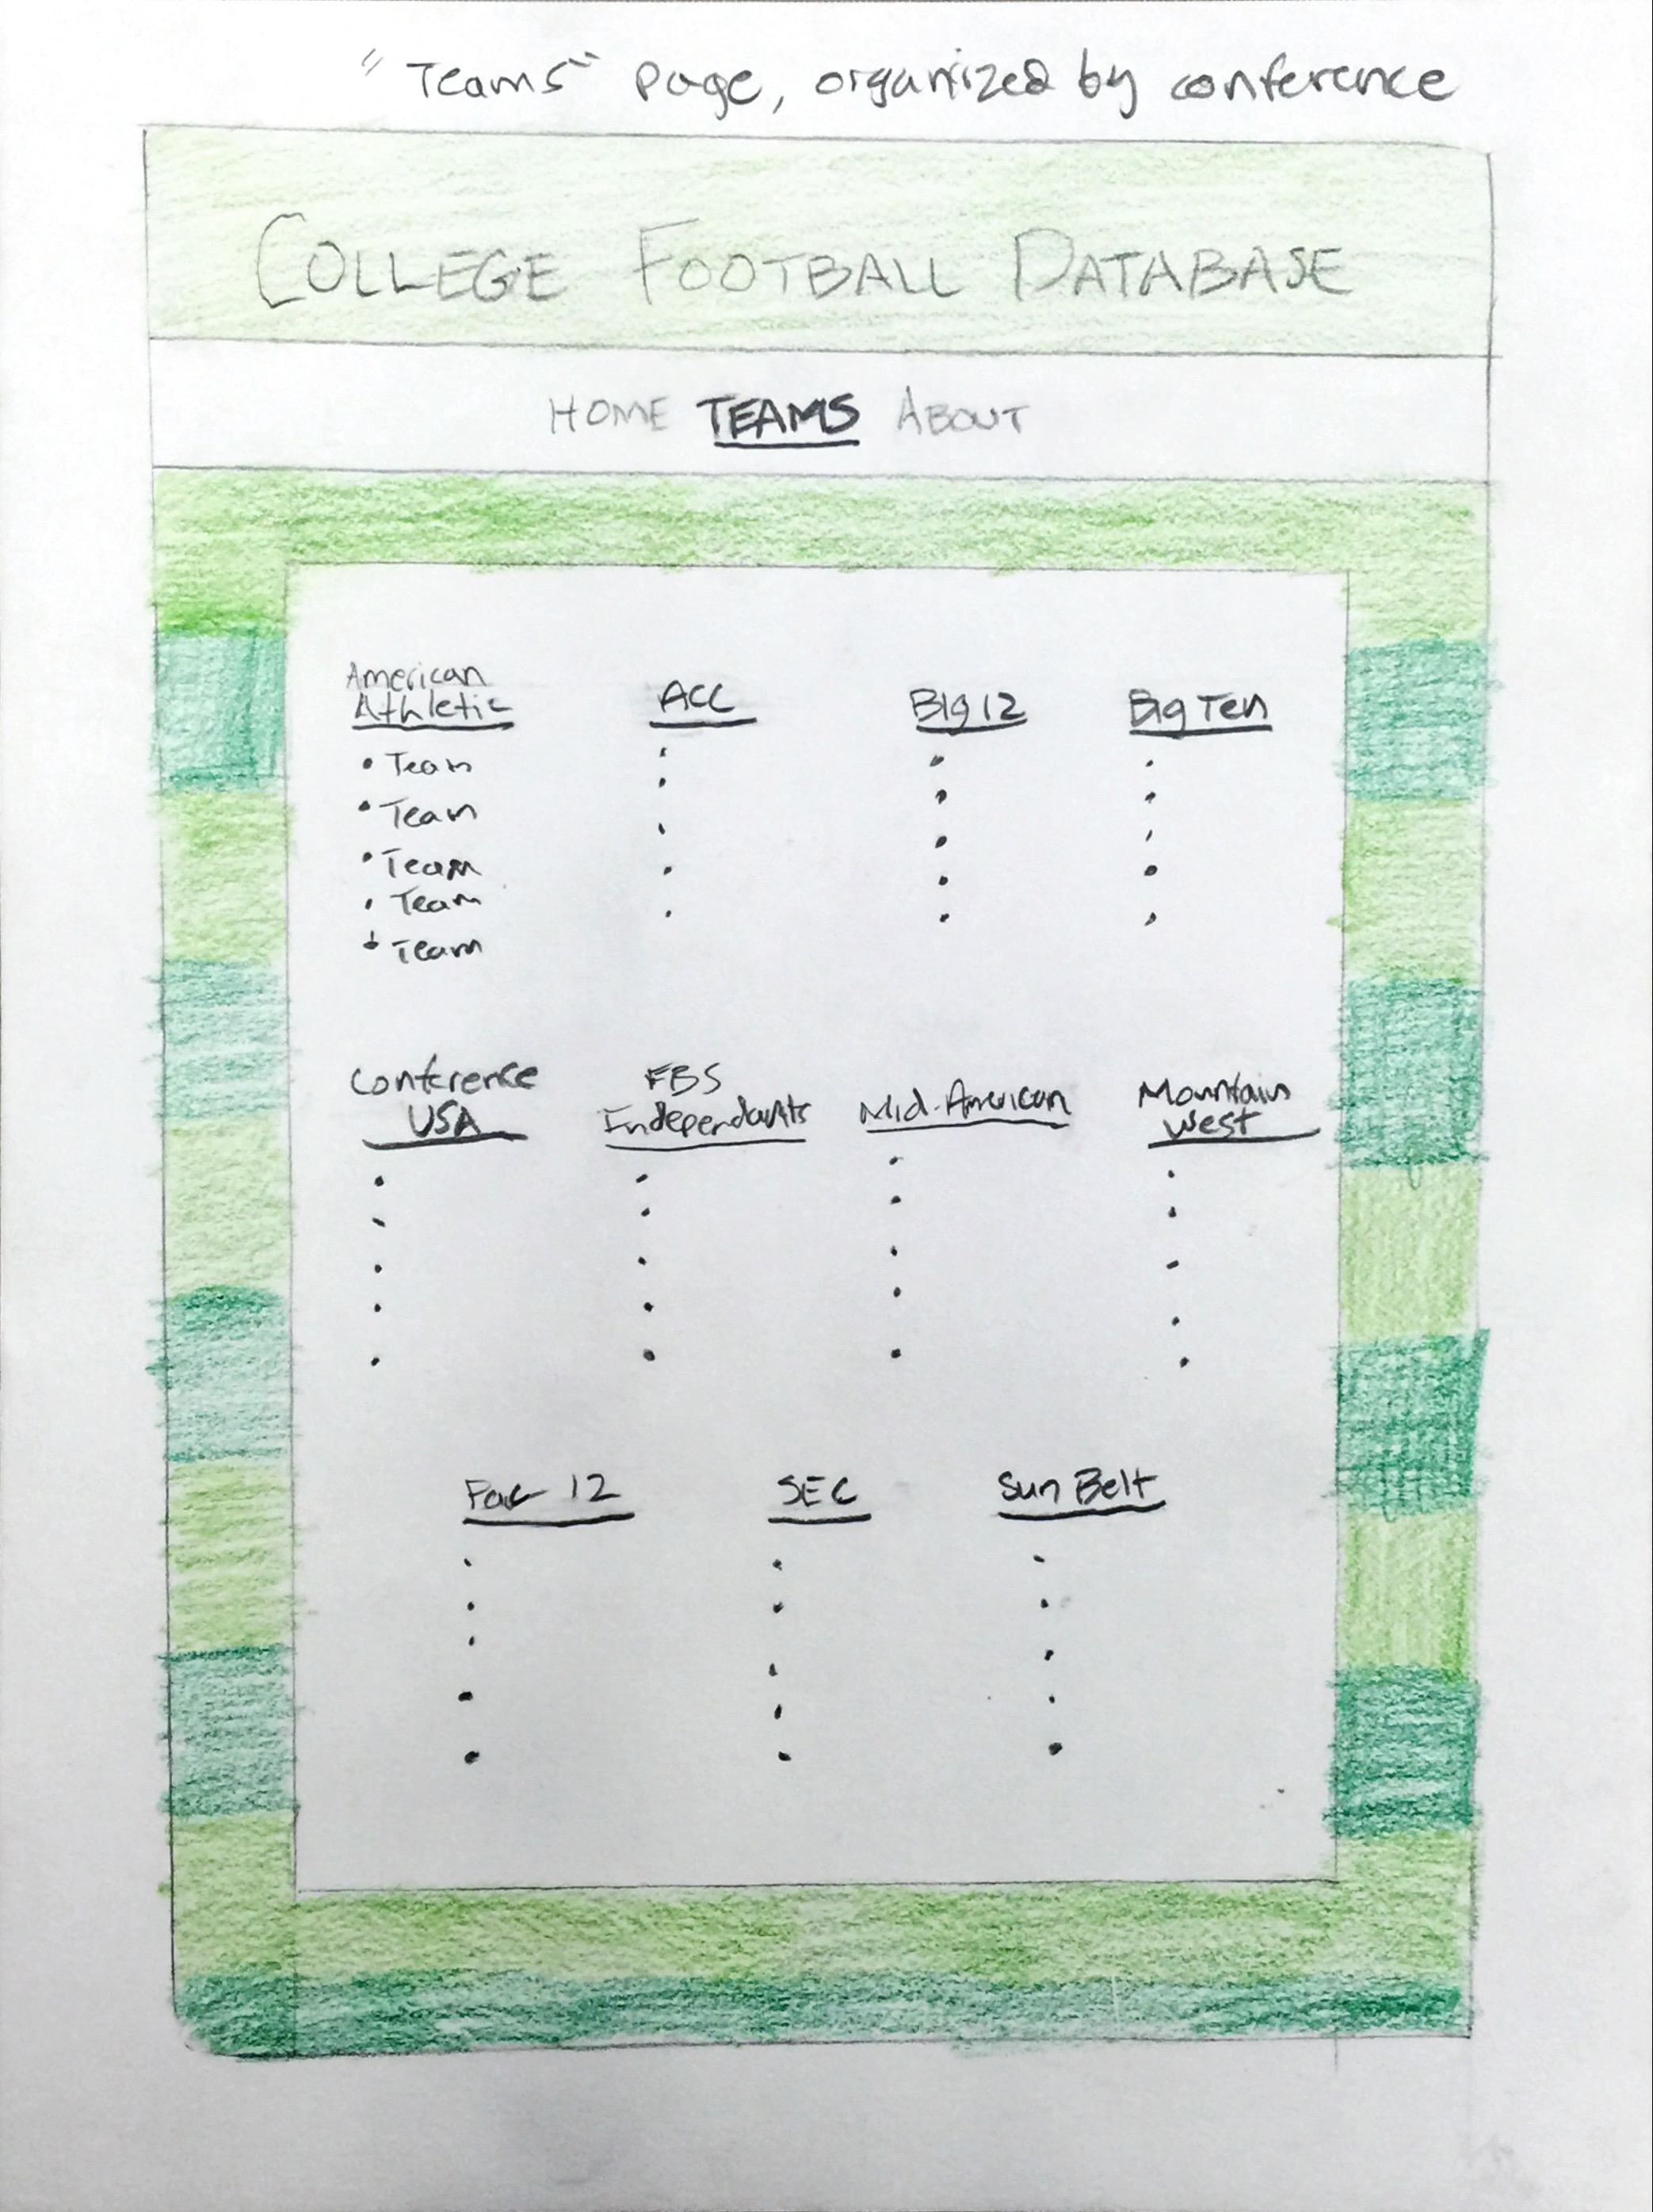 "Teams" page, organized by conference
COLLEGE FOOTBALL DATABASE
HOME TEAMS ABOUT
American
Athletic
• Team
• Team
• Team
• Team
• Team
ACC
Big 12
Big Ten
Conference
USA
FBS
Independants
Mid-American
Mountain
West
Pac 12
SEC
Sun Belt